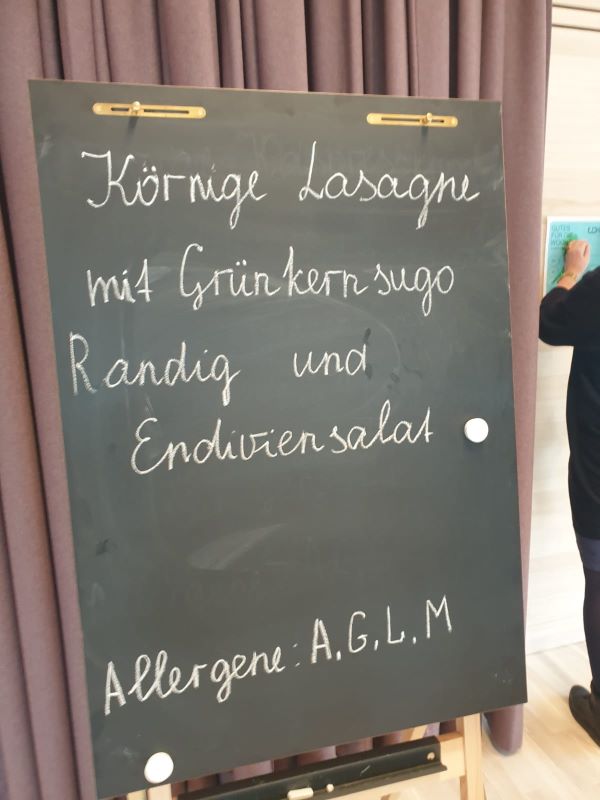 Körnige Lasagne
mit Grünkernsugo
Randig und
Endiviensalat
Allergene: A, G, L, M
GUTES
FÜR DIE